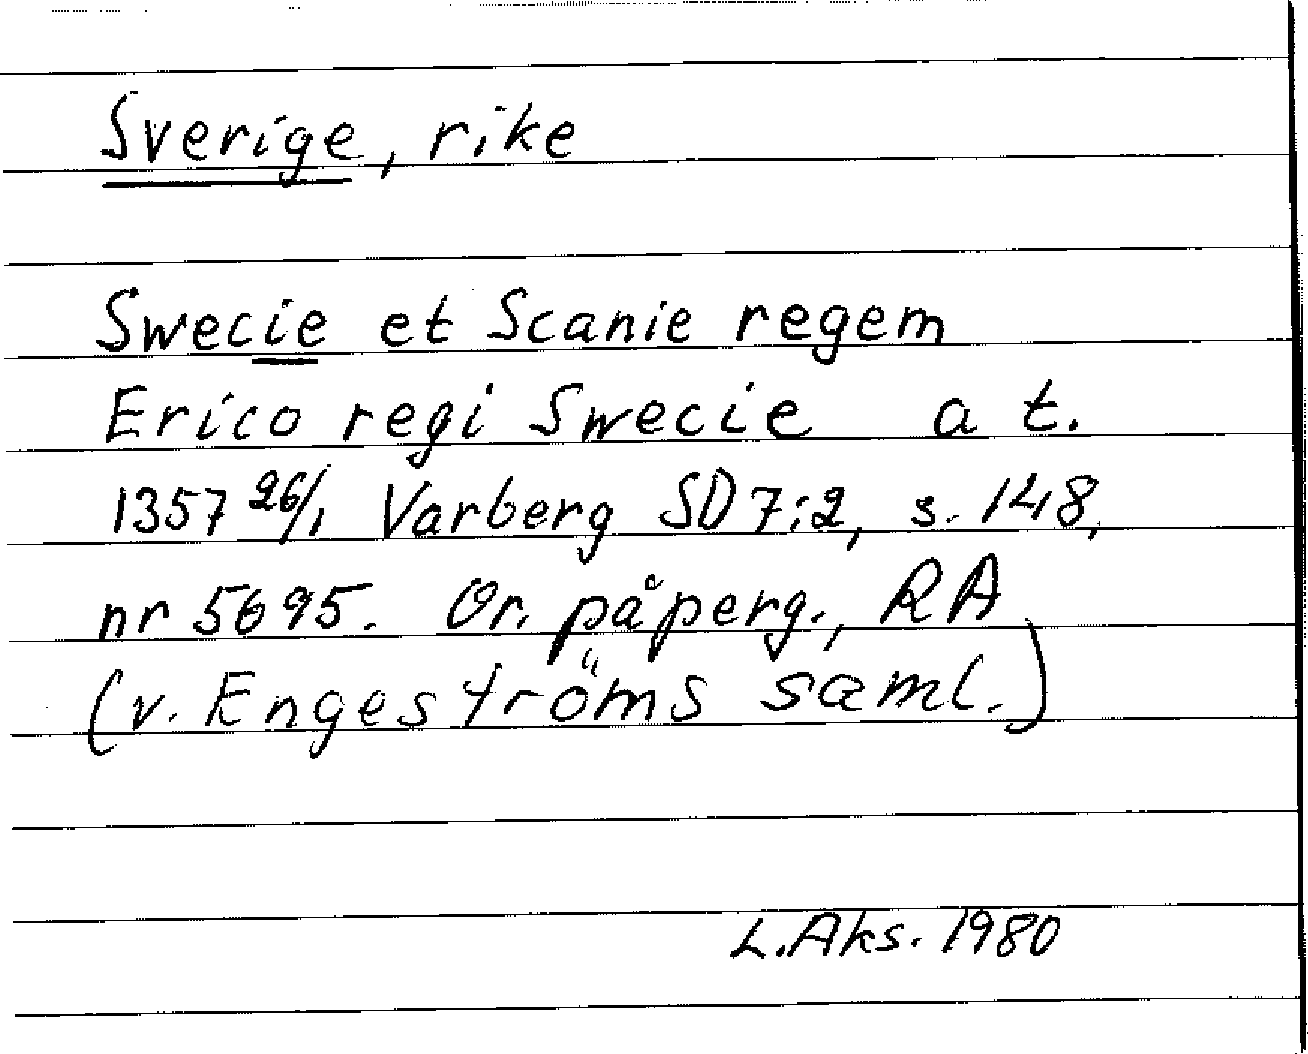 Sverige, rike
Swecie et Scanie regem
Erico regi Swecie a t.
1357 26/1 Varberg SD 7:2, s. 148,
nr 5695. Or. på perg., RA
(v. Engeströms saml.)
L. Aks. 1980